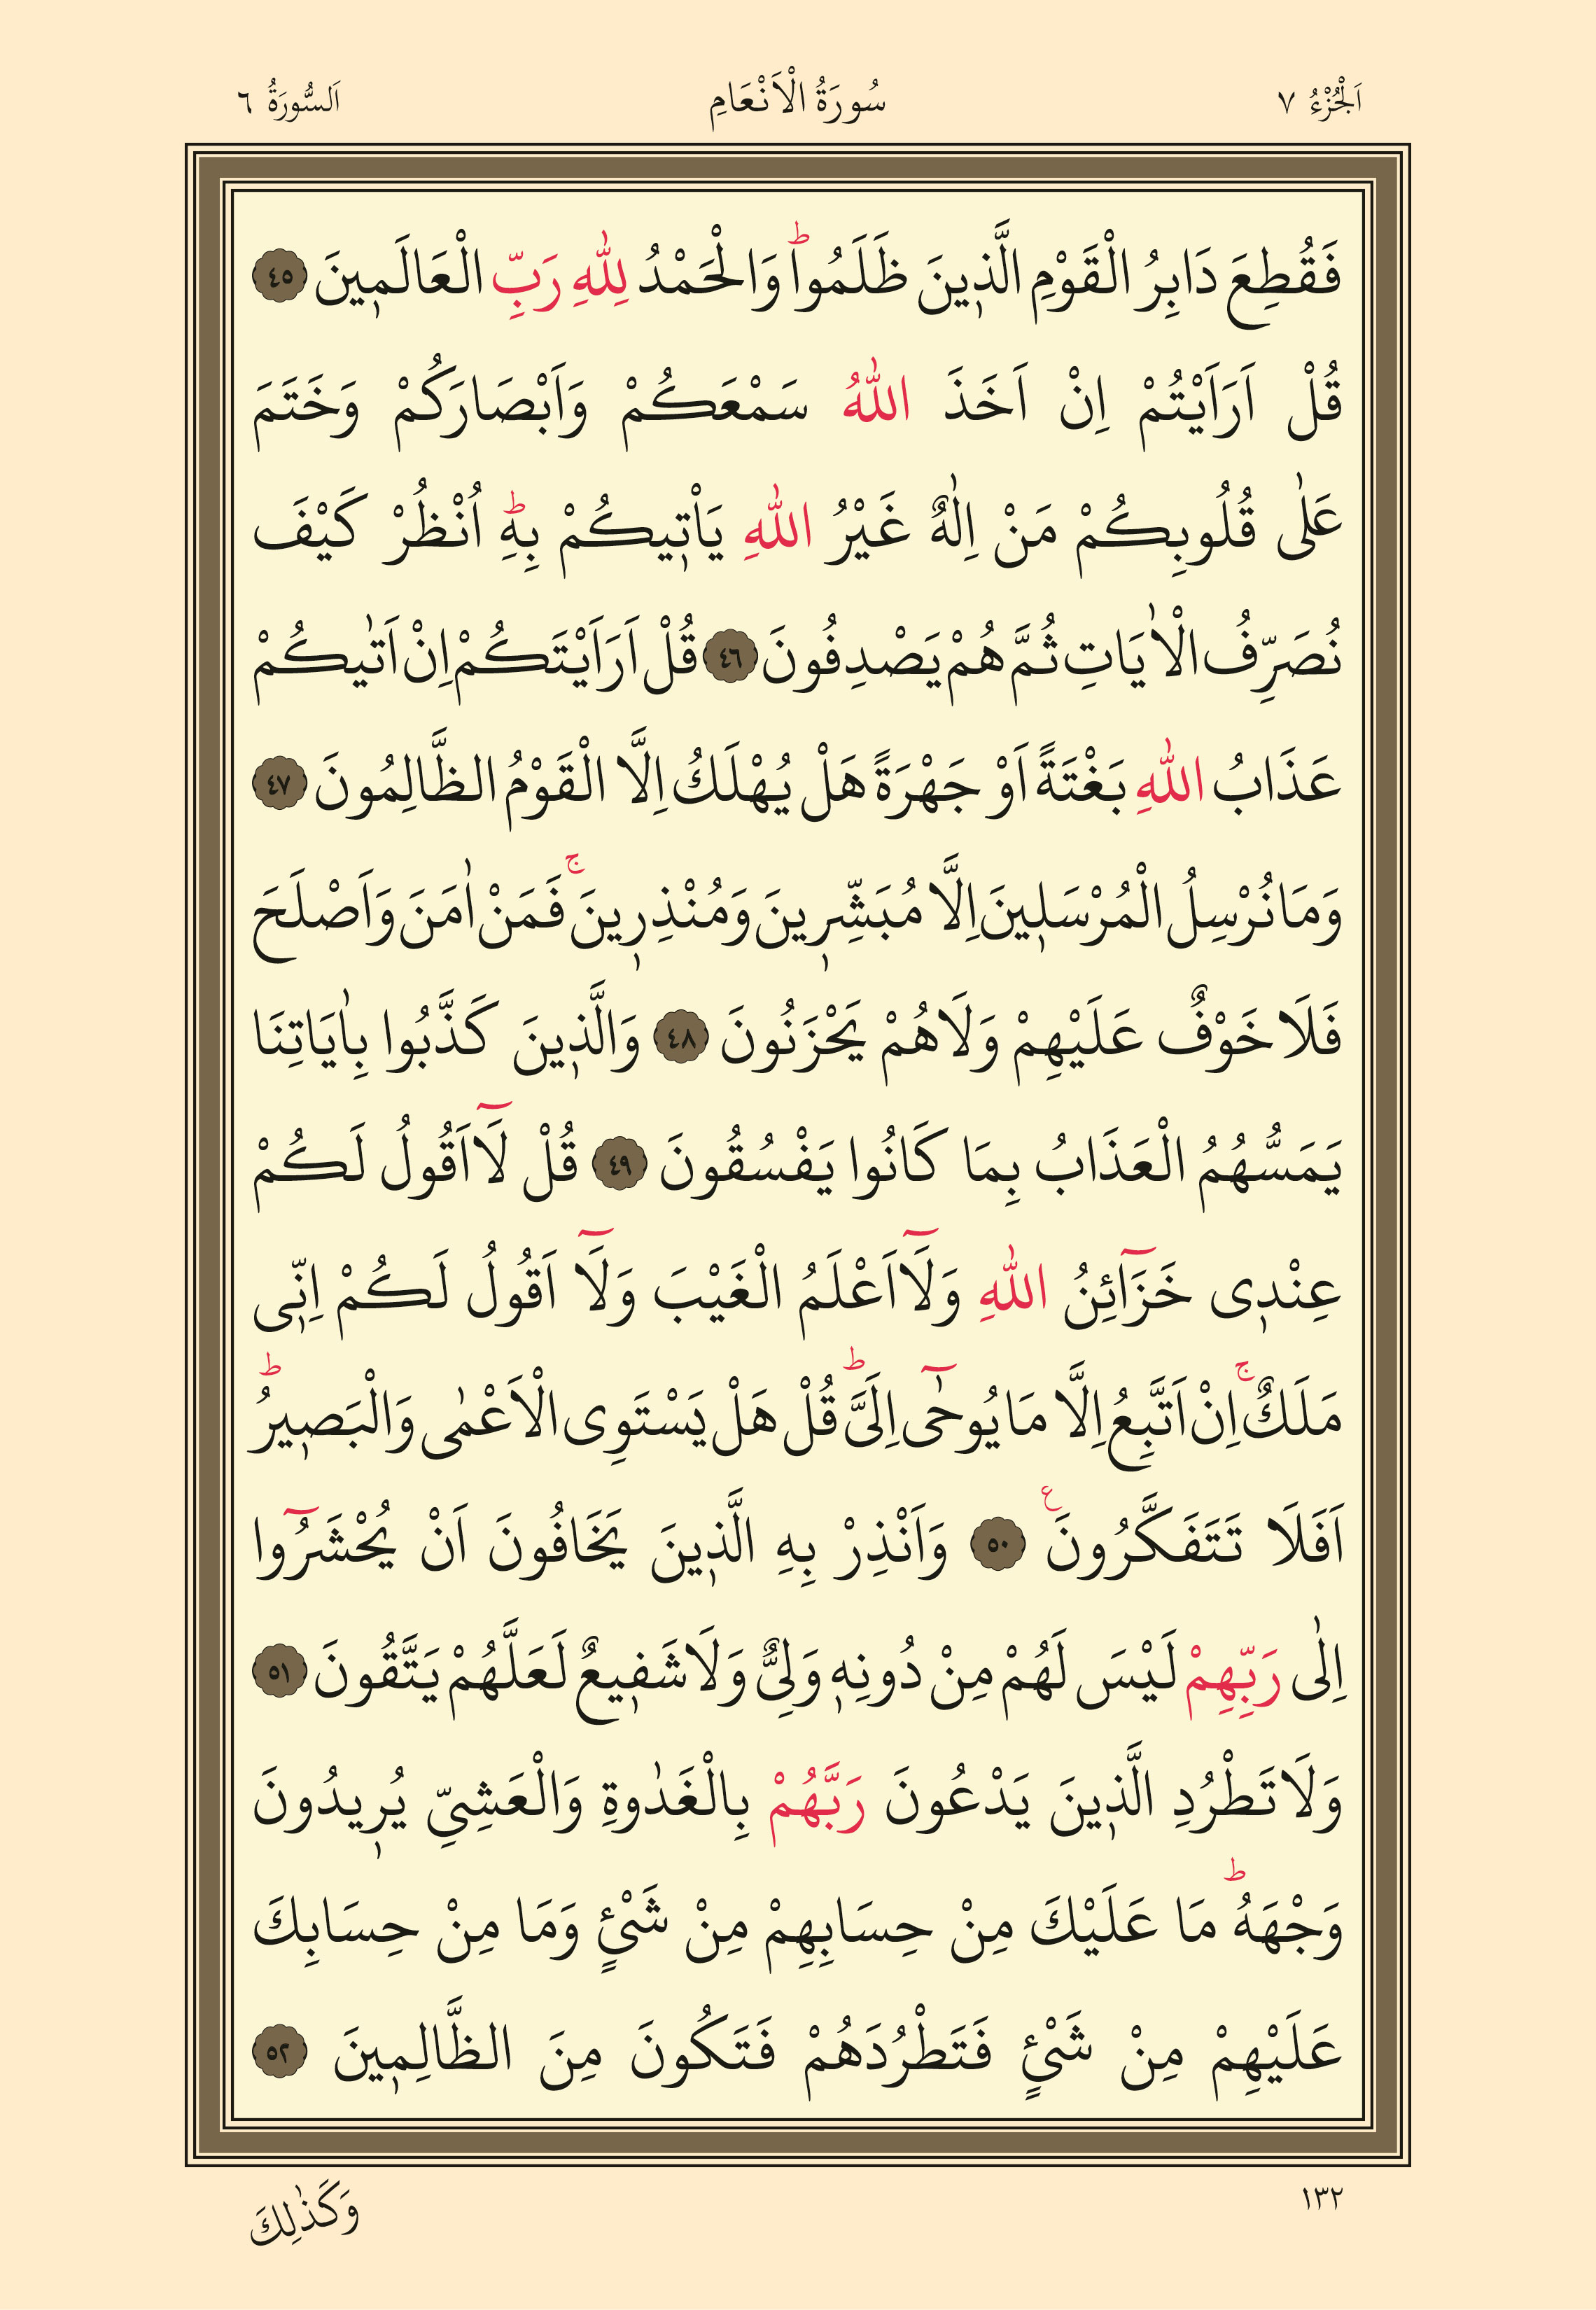 اَلْجُزْءُ ٧ سُورَةُ الْاَنْعَامِ اَلسُّورَةُ ٦
فَقُطِعَ دَابِرُ الْقَوْمِ الَّذ۪ينَ ظَلَمُواۜ وَالْحَمْدُ لِلّٰهِ رَبِّ الْعَالَم۪ينَ ﴿٤٥﴾
قُلْ اَرَاَيْتُمْ اِنْ اَخَذَ اللّٰهُ سَمْعَكُمْ وَاَبْصَارَكُمْ وَخَتَمَ
عَلٰى قُلُوبِكُمْ مَنْ اِلٰهٌ غَيْرُ اللّٰهِ يَأْت۪يكُمْ بِهِۜ اُنْظُرْ كَيْفَ
نُصَرِّفُ الْاٰيَاتِ ثُمَّ هُمْ يَصْدِفُونَ ﴿٤٦﴾ قُلْ اَرَاَيْتَكُمْ اِنْ اَتٰيكُمْ
عَذَابُ اللّٰهِ بَغْتَةً اَوْ جَهْرَةً هَلْ يُهْلَكُ اِلَّا الْقَوْمُ الظَّالِمُونَ ﴿٤٧﴾
وَمَا نُرْسِلُ الْمُرْسَل۪ينَ اِلَّا مُبَشِّر۪ينَ وَمُنْذِر۪ينَۚ فَمَنْ اٰمَنَ وَاَصْلَحَ
فَلَا خَوْفٌ عَلَيْهِمْ وَلَا هُمْ يَحْزَنُونَ ﴿٤٨﴾ وَالَّذ۪ينَ كَذَّبُوا بِاٰيَاتِنَا
يَمَسُّهُمُ الْعَذَابُ بِمَا كَانُوا يَفْسُقُونَ ﴿٤٩﴾ قُلْ لَٓا اَقُولُ لَكُمْ
عِنْد۪ى خَزَٓائِنُ اللّٰهِ وَلَٓا اَعْلَمُ الْغَيْبَ وَلَٓا اَقُولُ لَكُمْ اِنّ۪ى
مَلَكٌۚ اِنْ اَتَّبِعُ اِلَّا مَا يُوحٰٓى اِلَىَّۜ قُلْ هَلْ يَسْتَوِى الْاَعْمٰى وَالْبَص۪يرُۜ
اَفَلَا تَتَفَكَّرُونَ۟ ﴿٥٠﴾ وَاَنْذِرْ بِهِ الَّذ۪ينَ يَخَافُونَ اَنْ يُحْشَرُٓوا
اِلٰى رَبِّهِمْ لَيْسَ لَهُمْ مِنْ دُونِه۪ وَلِىٌّ وَلَا شَف۪يعٌ لَعَلَّهُمْ يَتَّقُونَ ﴿٥١﴾
وَلَا تَطْرُدِ الَّذ۪ينَ يَدْعُونَ رَبَّهُمْ بِالْغَدٰوةِ وَالْعَشِىِّ يُر۪يدُونَ
وَجْهَهُۜ مَا عَلَيْكَ مِنْ حِسَابِهِمْ مِنْ شَىْءٍ وَمَا مِنْ حِسَابِكَ
عَلَيْهِمْ مِنْ شَىْءٍ فَتَطْرُدَهُمْ فَتَكُونَ مِنَ الظَّالِم۪ينَ ﴿٥٢﴾
١٣٢ وَكَذٰلِكَ